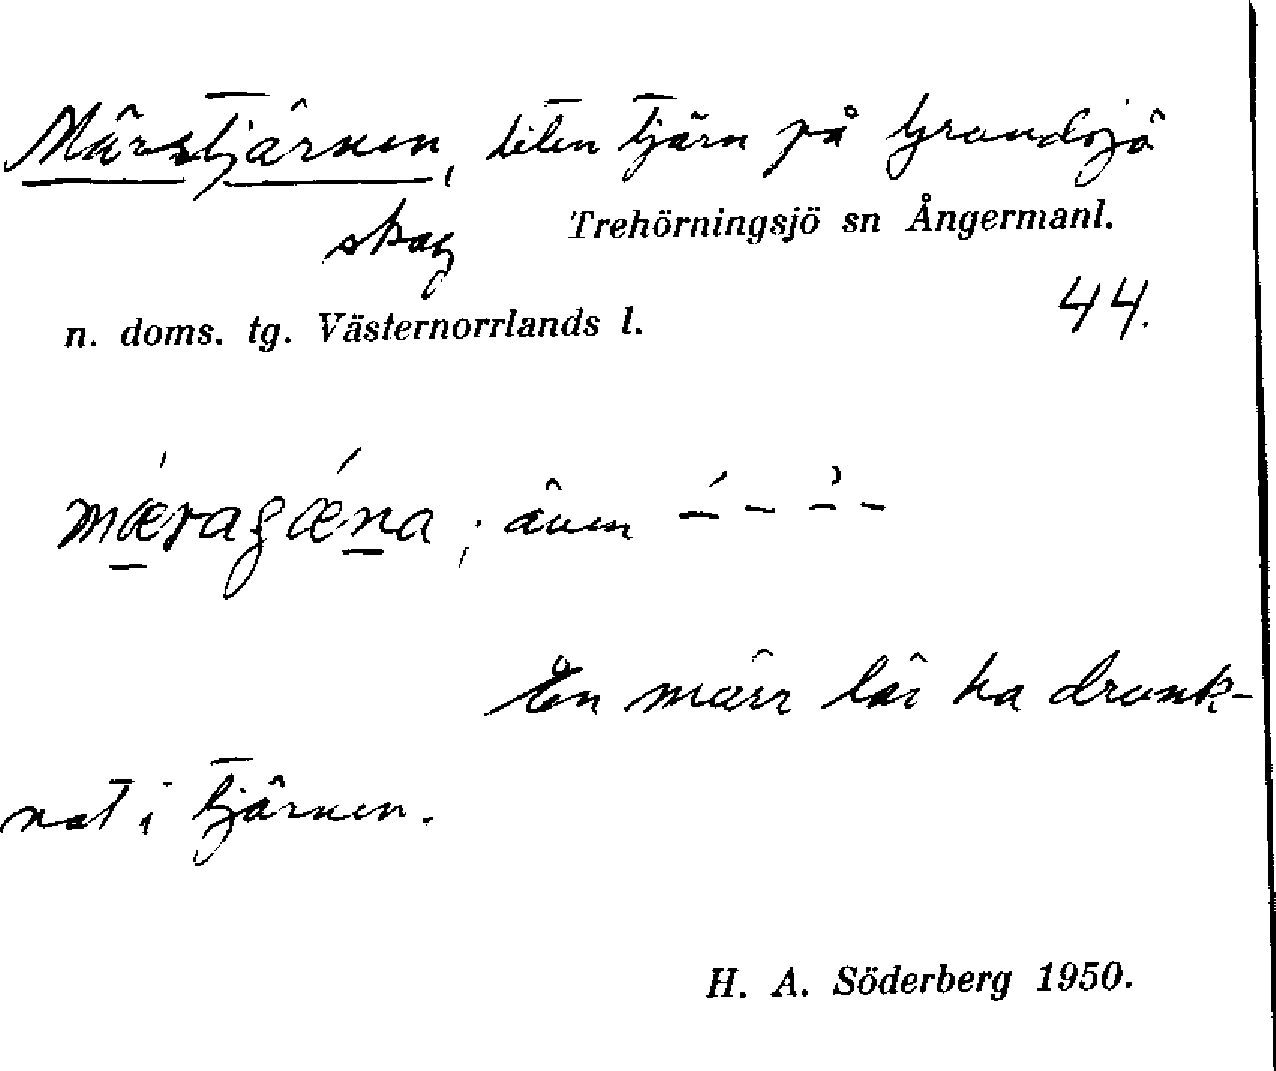 Märstjärnen, liten tjärn på Grundsjö
skog Trehörningsjö sn Ångermanl.
n. doms. tg. Västernorrlands l. 44.
även
En märr lär ha drunk-
nat i tjärnen.
H. A. Söderberg 1950.